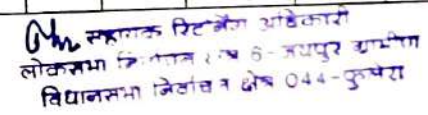 सहायक रिटर्निंग अधिकारी
लोकसभा 6-जयपुर ग्रामीण
विधानसभा निर्वाचन क्षेत्र 044-फुलेरा